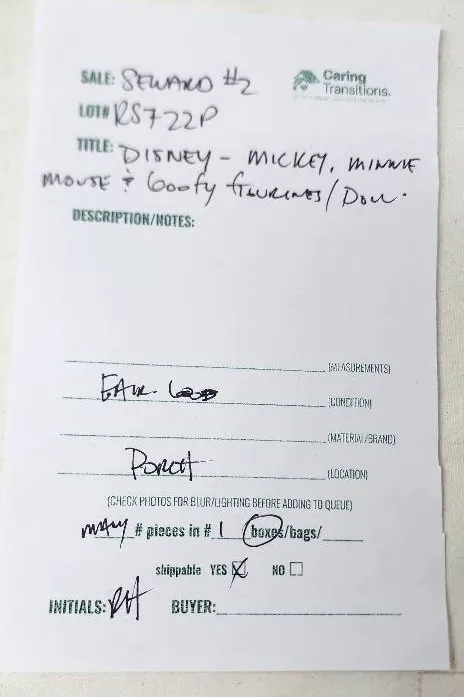 SALE: SEWARD #2
Caring
Transitions.
LOT# RS722P
TITLE: DISNEY - MICKEY, MINNIE
MOUSE & Goofy FIGURINES/DOLL.
DESCRIPTION/NOTES:
(MEASUREMENTS)
FAIR-GOOD (CONDITION)
(MATERIAL/BRAND)
PORCH (LOCATION)
(CHECK PHOTOS FOR BLUR/LIGHTING BEFORE ADDING TO QUEUE)
MANY # pieces in # 1 boxes/bags/
shippable YES ☒ NO ☐
INITIALS: RH BUYER: